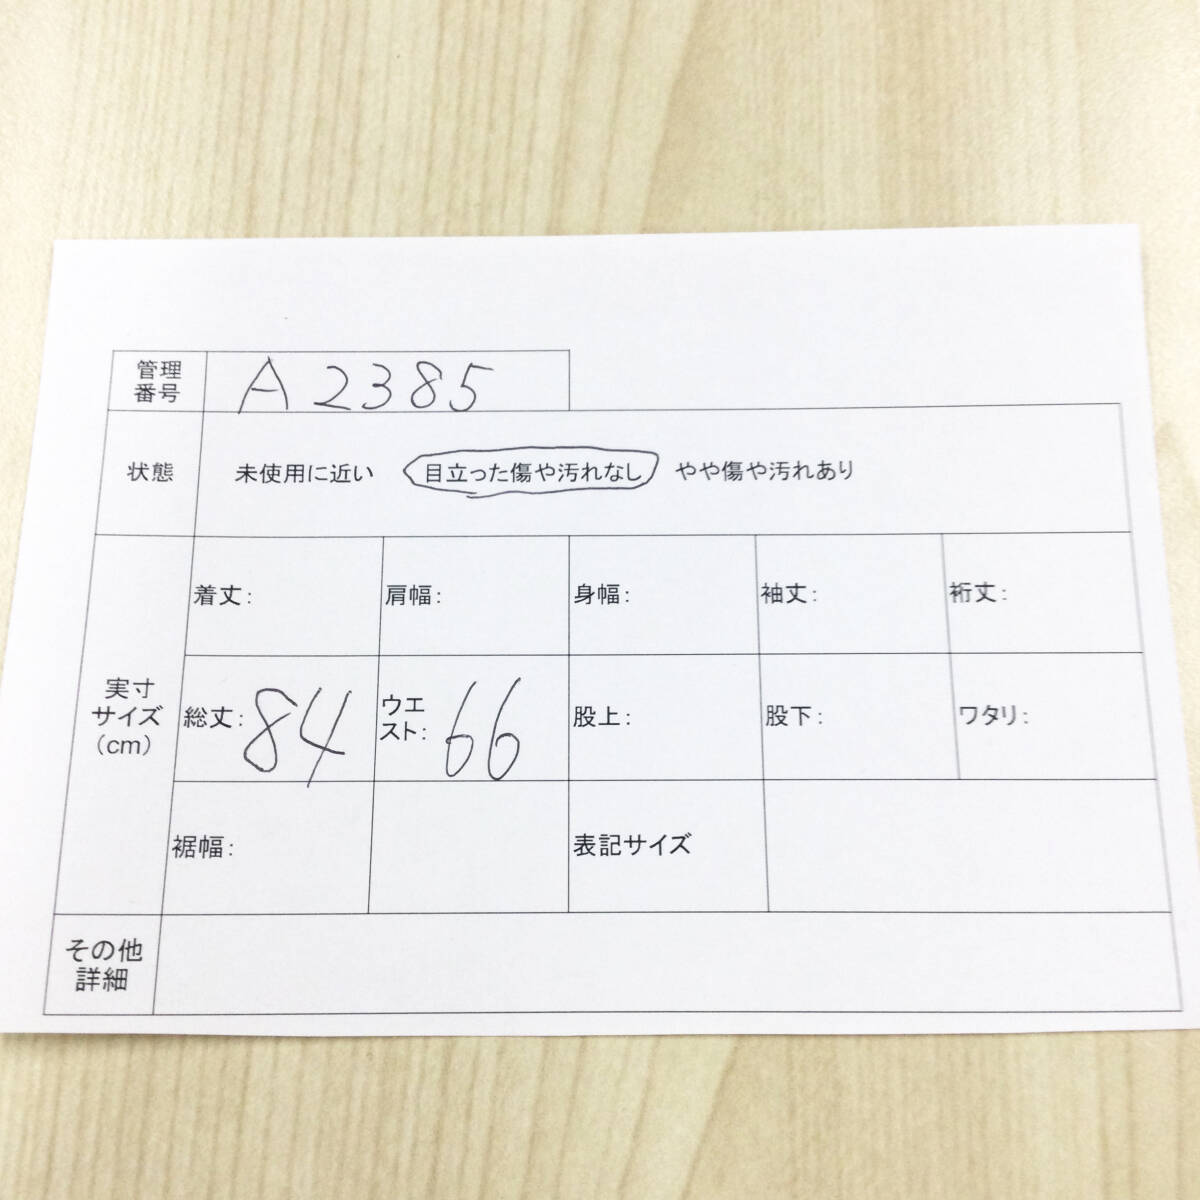 管理
番号
A2385
状態
未使用に近い 目立った傷や汚れなし やや傷や汚れあり
実寸
サイズ
(cm)
着丈:
肩幅:
身幅:
袖丈:
裄丈:
総丈: 84
ウエ
スト: 66
股上:
股下:
ワタリ:
裾幅:
表記サイズ
その他
詳細